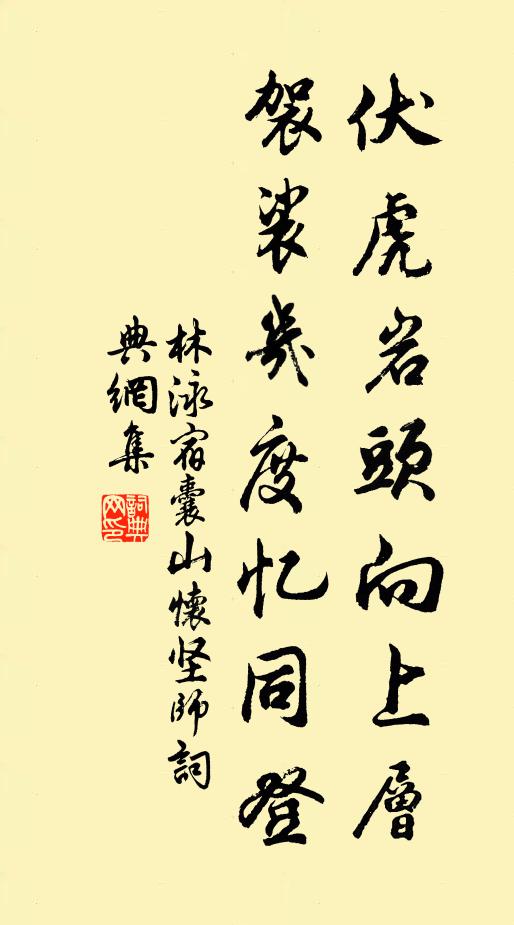 伏虎岩頭向上層
袈裟幾度忆同登
林泳宿囊山懷坚師詞
典網集
詞典網印